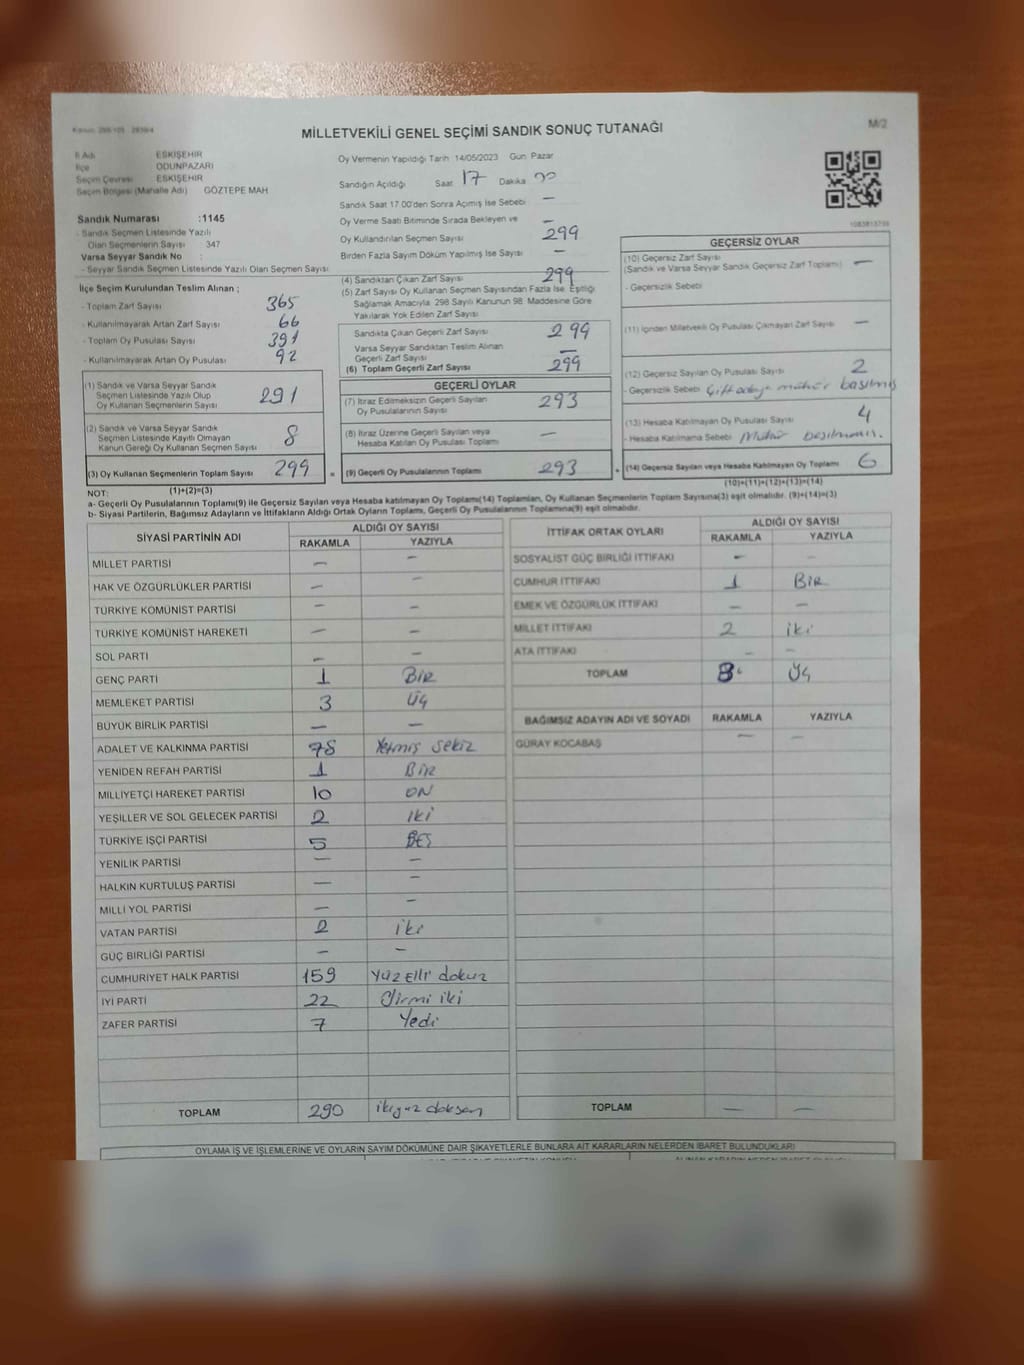 MİLLETVEKİLİ GENEL SEÇİMİ SANDIK SONUÇ TUTANAĞI
M/2
İl Adı ESKİŞEHİR
İlçe ODUNPAZARI
Seçim Çevresi ESKİŞEHİR
Seçim Bölgesi (Mahalle Adı) GÖZTEPE MAH
Sandık Numarası :1145
- Sandık Seçmen Listesinde Yazılı
Olan Seçmenlerin Sayısı 347
Varsa Seyyar Sandık No :
- Seyyar Sandık Seçmen Listesinde Yazılı Olan Seçmen Sayısı
İlçe Seçim Kurulundan Teslim Alınan ;
- Toplam Zarf Sayısı 365
- Kullanılmayarak Artan Zarf Sayısı 66
- Toplam Oy Pusulası Sayısı 391
- Kullanılmayarak Artan Oy Pusulası 92
(1) Sandık ve Varsa Seyyar Sandık
Seçmen Listesinde Yazılı Olup
Oy Kullanan Seçmenlerin Sayısı 291
(2) Sandık ve Varsa Seyyar Sandık
Seçmen Listesinde Kayıtlı Olmayan
Kanun Gereği Oy Kullanan Seçmen Sayısı 8
(3) Oy Kullanan Seçmenlerin Toplam Sayısı 299 =
(1)+(2)=(3)
Oy Vermenin Yapıldığı Tarih 14/05/2023 Gün Pazar
Sandığın Açıldığı Saat 17 Dakika
Sandık Saat 17.00'den Sonra Açımış İse Sebebi —
Oy Verme Saati Bitiminde Sırada Bekleyen ve —
Oy Kullandırılan Seçmen Sayısı 299
Birden Fazla Sayım Döküm Yapılmış İse Sayısı —
(4) Sandıktan Çıkan Zarf Sayısı 299
(5) Zarf Sayısı Oy Kullanan Seçmen Sayısından Fazla İse, Eşitliği
Sağlamak Amacıyla 298 Sayılı Kanunun 98. Maddesine Göre
Yakılarak Yok Edilen Zarf Sayısı
Sandıkta Çıkan Geçerli Zarf Sayısı 299
Varsa Seyyar Sandıktan Teslim Alınan
Geçerli Zarf Sayısı —
(6) Toplam Geçerli Zarf Sayısı 299
GEÇERLİ OYLAR
(7) İtiraz Edilmeksizin Geçerli Sayılan
Oy Pusulalarının Sayısı 293
(8) İtiraz Üzerine Geçerli Sayılan veya
Hesaba Katılan Oy Pusulası Toplamı —
(9) Geçerli Oy Pusulalarının Toplamı 293 +
1083813739
GEÇERSİZ OYLAR
(10) Geçersiz Zarf Sayısı
(Sandık ve Varsa Seyyar Sandık Geçersiz Zarf Toplamı) —
- Geçersizlik Sebebi
(11) İçinden Milletvekili Oy Pusulası Çıkmayan Zarf Sayısı —
(12) Geçersiz Sayılan Oy Pusulası Sayısı 2
- Geçersizlik Sebebi mühür basılmış
(13) Hesaba Katılmayan Oy Pusulası Sayısı 4
- Hesaba Katılmama Sebebi Mühür basılmamış.
(14) Geçersiz Sayılan veya Hesaba Katılmayan Oy Toplamı 6
(10)+(11)+(12)+(13)=(14)
NOT:
a- Geçerli Oy Pusulalarının Toplamı(9) ile Geçersiz Sayılan veya Hesaba katılmayan Oy Toplamı(14) Toplamları, Oy Kullanan Seçmenlerin Toplam Sayısına(3) eşit olmalıdır. (9)+(14)=(3)
b- Siyasi Partilerin, Bağımsız Adayların ve İttifakların Aldığı Ortak Oyların Toplamı, Geçerli Oy Pusulalarının Toplamına(9) eşit olmalıdır.
SİYASİ PARTİNİN ADI ALDIĞI OY SAYISI
RAKAMLA YAZIYLA
MİLLET PARTİSİ — —
HAK VE ÖZGÜRLÜKLER PARTİSİ — —
TÜRKİYE KOMÜNİST PARTİSİ — —
TÜRKİYE KOMÜNİST HAREKETİ — —
SOL PARTİ — —
GENÇ PARTİ 1 BİR
MEMLEKET PARTİSİ 3 ÜÇ
BÜYÜK BİRLİK PARTİSİ — —
ADALET VE KALKINMA PARTİSİ 78 Yetmiş sekiz
YENİDEN REFAH PARTİSİ 1 BİR
MİLLİYETÇİ HAREKET PARTİSİ 10 ON
YEŞİLLER VE SOL GELECEK PARTİSİ 2 İki
TÜRKİYE İŞÇİ PARTİSİ 5 BEŞ
YENİLİK PARTİSİ — —
HALKIN KURTULUŞ PARTİSİ — —
MİLLİ YOL PARTİSİ — —
VATAN PARTİSİ 2 iki
GÜÇ BİRLİĞİ PARTİSİ — —
CUMHURİYET HALK PARTİSİ 159 Yüz Elli dokuz
İYİ PARTİ 22 Yirmi iki
ZAFER PARTİSİ 7 Yedi
TOPLAM 290 ikiyüz doksan
İTTİFAK ORTAK OYLARI ALDIĞI OY SAYISI
RAKAMLA YAZIYLA
SOSYALİST GÜÇ BİRLİĞİ İTTİFAKI — —
CUMHUR İTTİFAKI 1 BİR
EMEK VE ÖZGÜRLÜK İTTİFAKI — —
MİLLET İTTİFAKI 2 iki
ATA İTTİFAKI — —
TOPLAM 3 Üç
BAĞIMSIZ ADAYIN ADI VE SOYADI RAKAMLA YAZIYLA
GÜRAY KOCABAŞ — —
TOPLAM — —
OYLAMA İŞ VE İŞLEMLERİNE VE OYLARIN SAYIM DÖKÜMÜNE DAİR ŞİKAYETLERLE BUNLARA AİT KARARLARIN NELERDEN İBARET BULUNDUKLARI